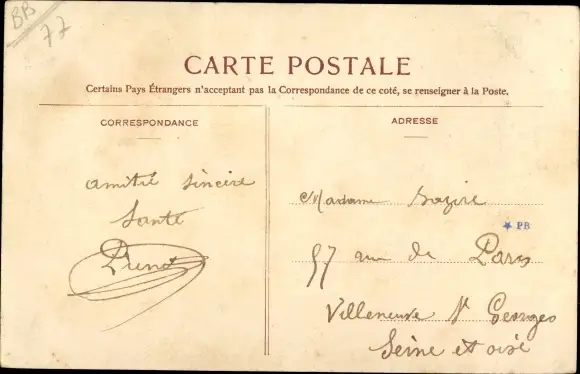 BB
77
CARTE POSTALE
Certains Pays Étrangers n'acceptant pas la Correspondance de ce coté, se renseigner à la Poste.
CORRESPONDANCE
amitié sincère
Santé
ADRESSE
Madame
PB
57 rue de Paris
Villeneuve St Georges
Seine et oise